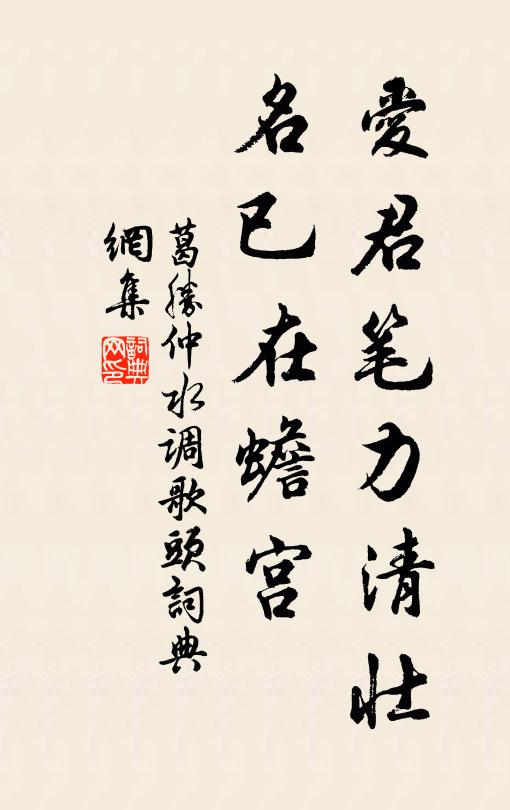 愛君笔力清壮
名已在蟾宫
葛勝仲水调歌頭詞典
網集
詞典网印